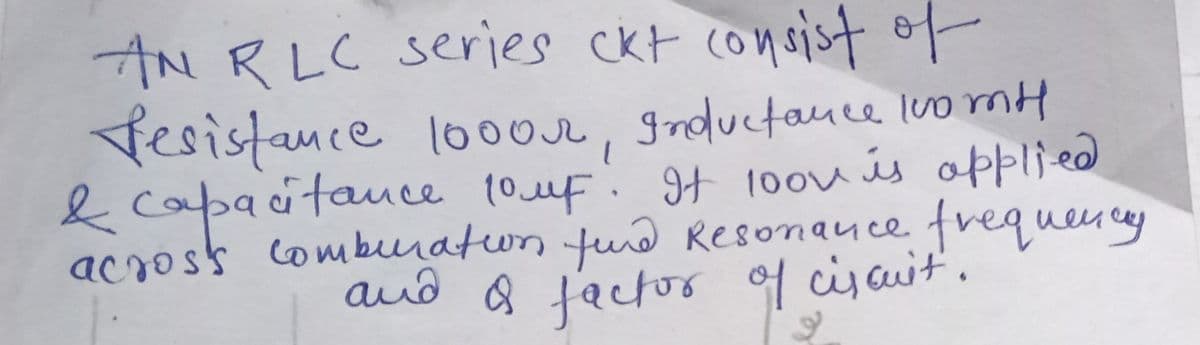 AN RLC series ckt consist of
resistance 1000Ω, Inductance 100 mH
& capacitance 10 uF. If 100v is applied
across combination find Resonance frequency
and Q factor of circuit.